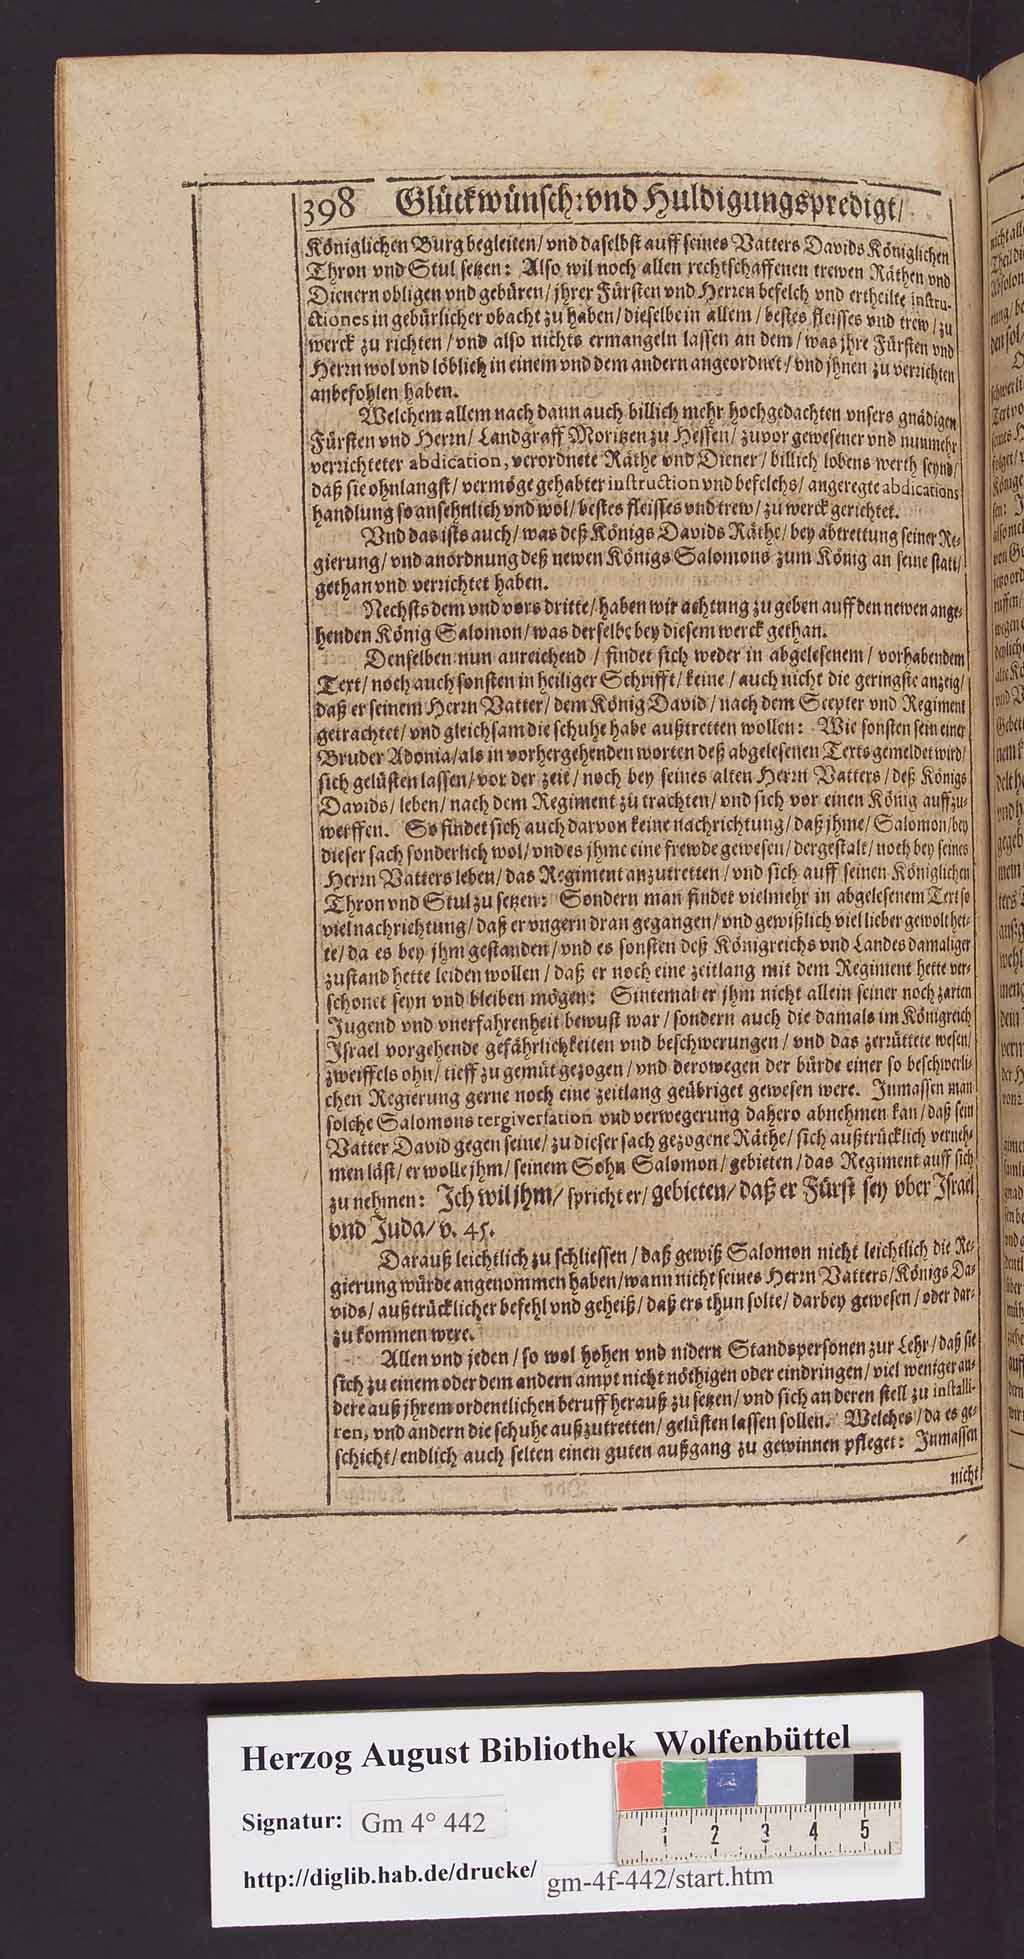 398 Glückwünsch: vnd Huldigungspredigt/
Königlichen Burg begleiten/ vnd daselbst auff seines Vatters Davids Königlichen
Thron vnd Stul setzen: Also wil noch allen rechtschaffenen trewen Räthen vnd
Dienern obligen vnd gebüren/ jhrer Fürsten vnd Herren befelch vnd ertheilte instru-
ctiones in gebürlicher obacht zu haben/ dieselbe in allem/ bestes fleisses vnd trew/ zu
werck zu richten/ vnd also nichts ermangeln lassen an dem/ was jhre Fürsten vnd
Herrn wol vnd löblich in einem vnd dem andern angeordnet/ vnd jhnen zu verrichten
anbefohlen haben.
Welchem allem nach dann auch billich mehr hochgedachten vnsers gnädigen
Fürsten vnd Herrn/ Landgraff Moritzen zu Hessen/ zuvor gewesener vnd nunmehr
verrichteter abdication, verordnete Räthe vnd Diener/ billich lobens werth seynd/
daß sie ohnlangst/ vermöge gehabter instruction vnd befelchs/ angeregte abdications
handlung so ansehnlich vnd wol/ bestes fleisses vnd trew/ zu werck gerichtet.
Vnd das ists auch/ was deß Königs Davids Räthe/ bey abtrettung seiner Re-
gierung/ vnd anordnung deß newen Königs Salomons zum König an seine statt/
gethan vnd verrichtet haben.
Nechsts dem vnd vors dritte/ haben wir achtung zu geben auff den newen ange-
henden König Salomon/ was derselbe bey diesem werck gethan.
Denselben nun anreichend/ findet sich weder in abgelesenem/ vorhabendem
Text/ noch auch sonsten in heiliger Schrifft/ keine/ auch nicht die geringste anzeig/
daß er seinem Herrn Vatter/ dem König David/ nach dem Scepter vnd Regiment
getrachtet/ vnd gleichsam die schuhe habe außtretten wollen: Wie sonsten sein einer
Bruder Adonia/ als in vorhergehenden worten deß abgelesenen Texts gemeldet wird/
sich gelüsten lassen/ vor der zeit/ noch bey seines alten Herrn Vatters/ deß Königs
Davids/ leben/ nach dem Regiment zu trachten/ vnd sich vor einen König auffzu-
werffen. So findet sich auch darvon keine nachrichtung/ daß jhme/ Salomon/ bey
dieser sach sonderlich wol/ vnd es jhme eine frewde gewesen/ dergestalt/ noch bey seines
Herrn Vatters leben/ das Regiment anzutretten/ vnd sich auff seinen Königlichen
Thron vnd Stul zu setzen: Sondern man findet vielmehr in abgelesenem Text so
viel nachrichtung/ daß er vngern dran gegangen/ vnd gewißlich viel lieber gewolt het-
te/ da es bey jhm gestanden/ vnd es sonsten deß Königreichs vnd Landes damaliger
zustand hette leiden wollen/ daß er noch eine zeitlang mit dem Regiment hette ver-
schonet seyn vnd bleiben mögen: Sintemal er jhm nicht allein seiner noch zarten
Jugend vnd vnerfahrenheit bewust war/ sondern auch die damals im Königreich
Israel vorgehende gefährlichkeiten vnd beschwerungen/ vnd das zerrüttete wesen/
zweiffels ohn/ tieff zu gemüt gezogen/ vnd derowegen der bürde einer so beschwerli-
chen Regierung gerne noch eine zeitlang geübriget gewesen were. Inmassen man
solche Salomons tergiversation vnd verwegerung dahero abnehmen kan/ daß sein
Vatter David gegen seine/ zu dieser sach gezogene Räthe/ sich außtrücklich verneh-
men läst/ er wolle jhm/ seinem Sohn Salomon/ gebieten/ das Regiment auff sich
zu nehmen: Ich wil jhm/ spricht er/ gebieten/ daß er Fürst sey vber Israel
vnd Juda/ v. 45.
Darauß leichtlich zu schliessen/ daß gewiß Salomon nicht leichtlich die Re-
gierung würde angenommen haben/ wann nicht seines Herrn Vatters/ Königs Da-
vids/ außtrücklicher befehl vnd geheiß/ daß ers thun solte/ darbey gewesen/ oder dar-
zu kommen were.
Allen vnd jeden/ so wol hohen vnd nidern Standspersonen zur Lehr/ daß sie
sich zu einem oder dem andern ampt nicht nöthigen oder eindringen/ viel weniger an-
dere auß jhrem ordentlichen beruff herauß zu setzen/ vnd sich an deren stell zu installi-
ren, vnd andern die schuhe außzutretten/ gelüsten lassen sollen. Welches/ da es ge-
schicht/ endlich auch selten einen guten außgang zu gewinnen pfleget: Inmassen
nicht
Herzog August Bibliothek Wolfenbüttel
Signatur: Gm 4° 442
http://diglib.hab.de/drucke/ gm-4f-442/start.htm
1 2 3 4 5